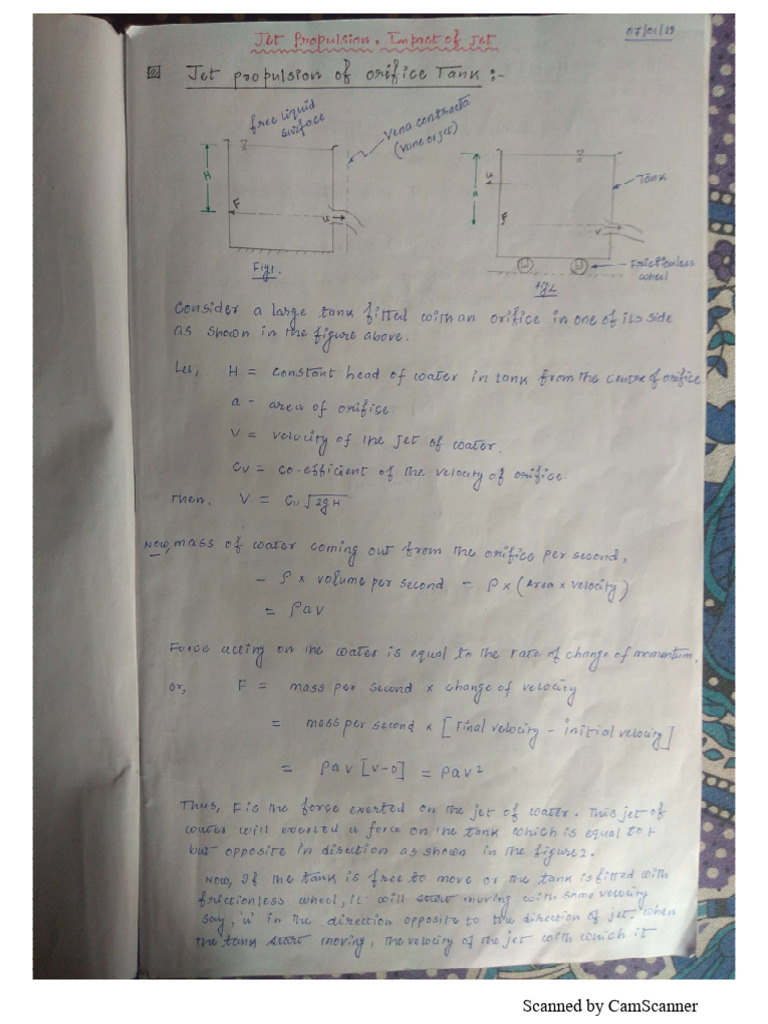 Jet Propulsion, Impact of Jet
07/01/19
Jet propulsion of orifice Tank :-
free liquid surface
Vena contracta
H
F
Fig1.
H
u
F
V
Tank
Frictionless wheel
fig2
Consider a large tank fitted with an orifice in one of its side
as shown in the figure above.
Let, H = constant head of water in tank from the centre of orifice
a = area of orifice.
V = velocity of the jet of water.
Cv = co-efficient of the velocity of orifice.
Then, V = Cv √2gH
Now, mass of water coming out from the orifice per second,
= ρ x volume per second = ρ x (Area x velocity)
= ρav
Force acting on the water is equal to the rate of change of momentum,
or, F = mass per second x change of velocity
= mass per second x [Final velocity - initial velocity]
= ρav [v-0] = ρav²
Thus, F is the force exerted on the jet of water. This jet of
water will exerted a force on the tank which is equal to F
but opposite in direction as shown in the figure 2.
Now, If the tank is free to move or the tank is fitted with
frictionless wheel, it will start moving with some velocity
say, 'u' in the direction opposite to the direction of jet, when
the tank start moving, the velocity of the jet with which it
Scanned by CamScanner